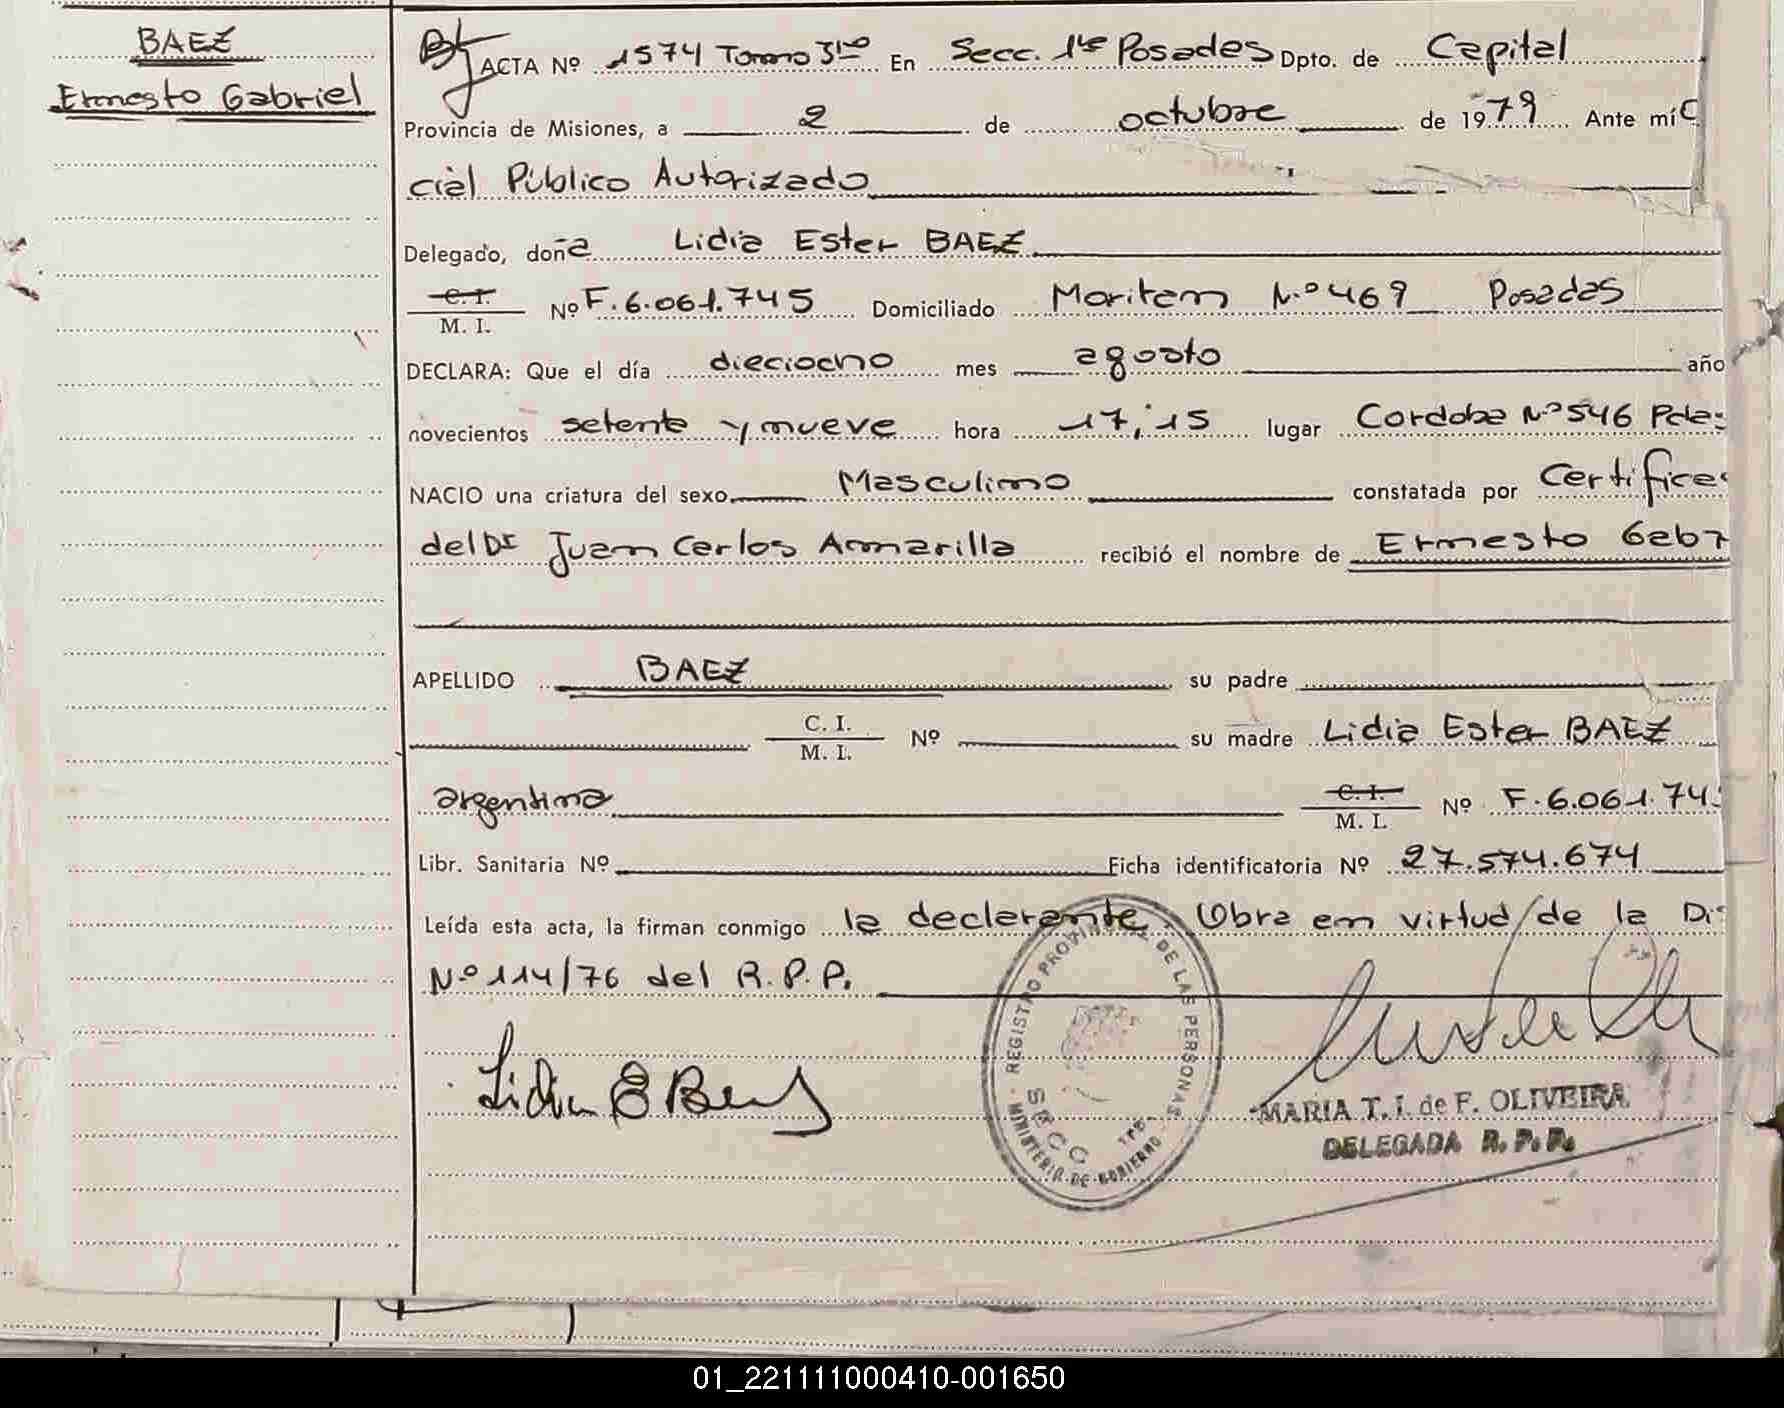 BAEZ
Ernesto Gabriel
ACTA Nº 1574 Tomo 3ro En Secc. 1ra Posadas Dpto. de Capital
Provincia de Misiones, a 2 de octubre de 1979 Ante mí
cial Público Autorizado
Delegado, doña Lidia Ester BAEZ
C. I.
M. I. Nº F.6.061.745 Domiciliado N.º 469 Posadas
DECLARA: Que el día dieciocho mes agosto año
novecientos setenta y nueve hora 17,15 lugar Cordoba Nº 546 Pdas
NACIO una criatura del sexo Masculino constatada por Certifica
del Dr Juan Carlos Amarilla recibió el nombre de Ernesto Gabr
APELLIDO BAEZ su padre
C. I.
M. I. Nº su madre Lidia Ester BAEZ
argentina C. I.
M. I. Nº F.6.061.74
Libr. Sanitaria Nº Ficha identificatoria Nº 27.574.674
Leída esta acta, la firman conmigo la declarante. Obra en virtud de la Di
Nº 114/76 del R.P.P.
Lidia E Baez
REGISTRO PROVINCIAL DE LAS PERSONAS
MINISTERIO DE GOBIERNO
SECC 1ra
MARIA T. I. de F. OLIVEIRA
DELEGADA R. P. P.
01_221111000410-001650